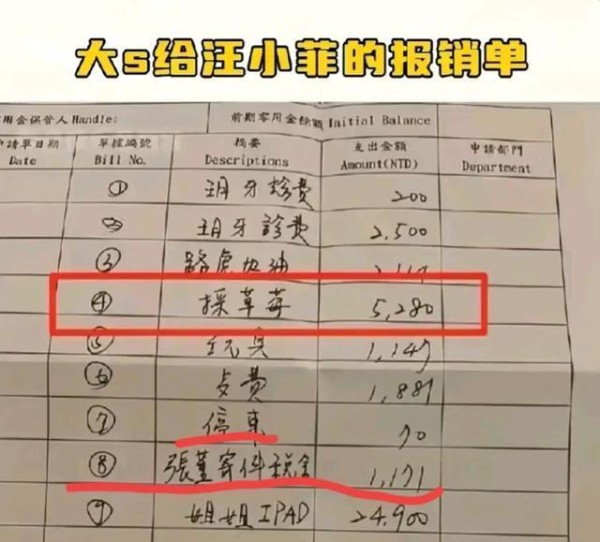 大s给汪小菲的报销单
用金保管人 Handle: 前期零用金餘額 Initial Balance
申請單日期 單據編號 摘要 支出金額 申請部門
Date Bill No. Descriptions Amount(NTD) Department
① 玥牙診費 200
② 玥牙診費 2,500
③ 路虎加油
④ 採草莓 5,280
⑤ 玩具 1,147
⑥ 1,881
⑦ 停車 70
⑧ 張蓳寄件稅金 1,171
⑨ 姐姐IPAD 24,900